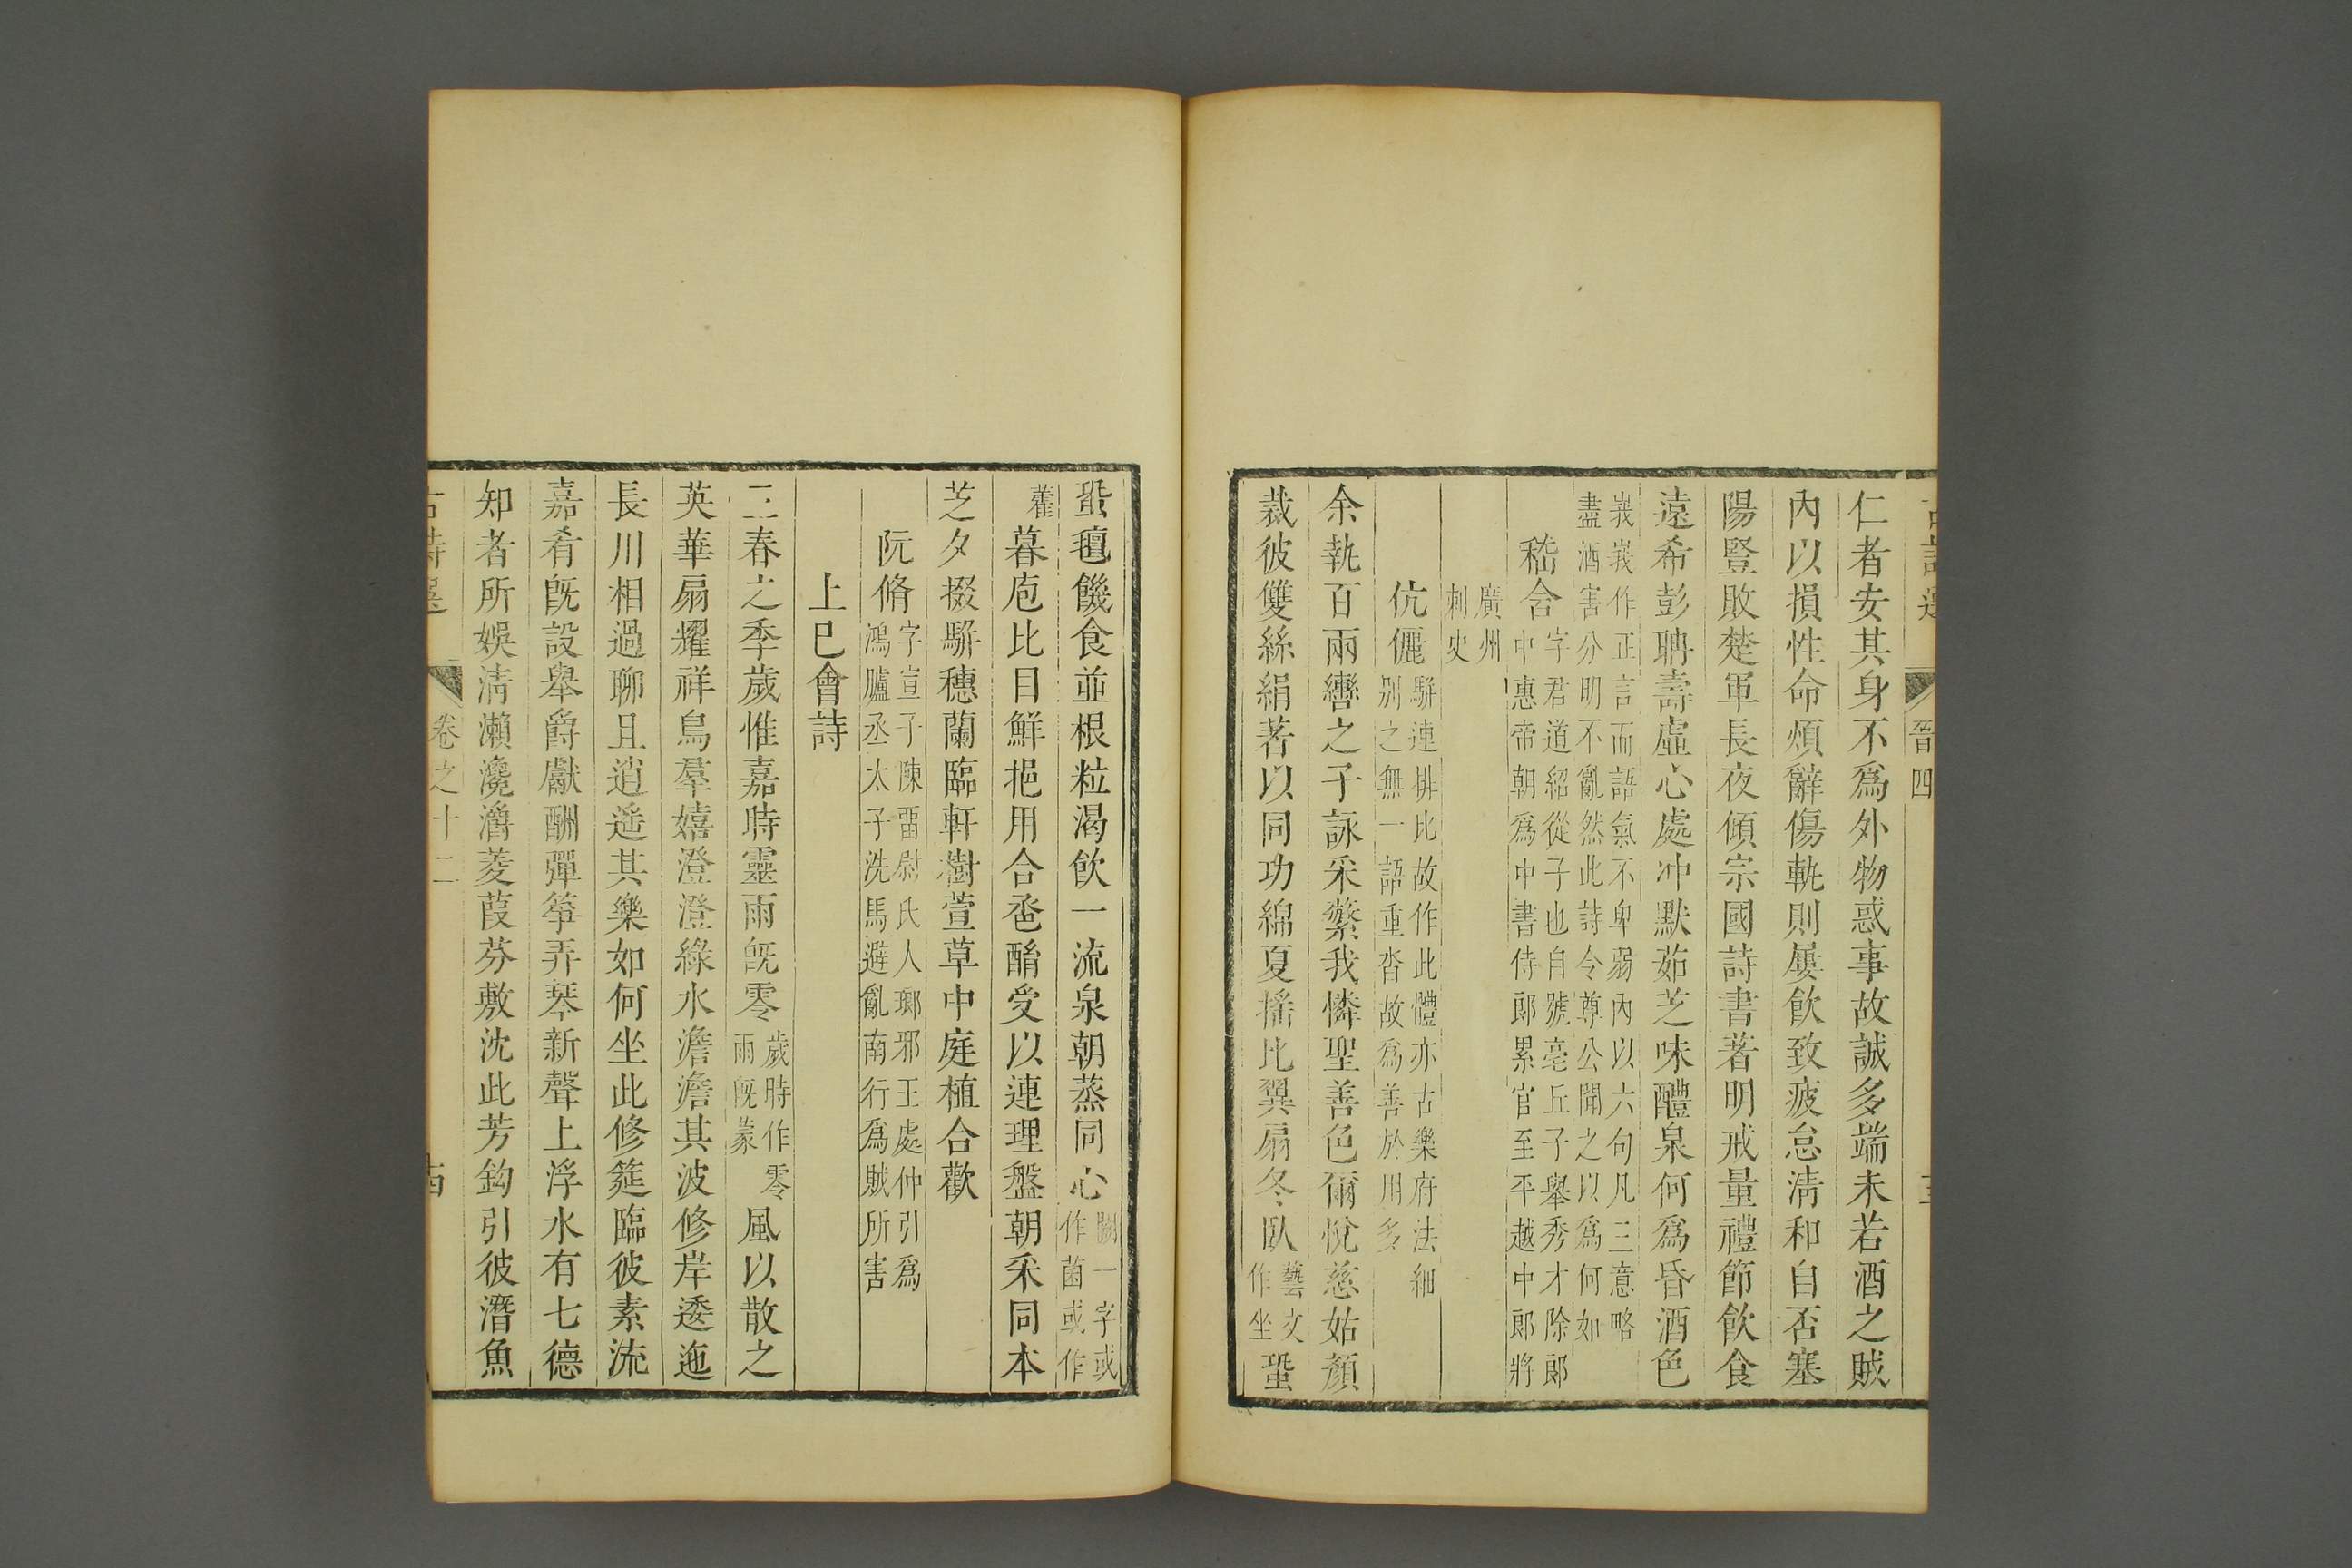 晉四
仁者安其身不爲外物惑事故誠多端未若酒之賊
內以損性命煩辭傷軌則屢飲致疲怠淸和自否塞
陽豎敗楚軍長夜傾宗國詩書著明戒量禮節飲食
遠希彭聃壽虛心處冲默茹芝味醴泉何爲昏酒色
峩峩作正言而語氣不卑弱內以六句凡三意略
盡酒害分明不亂然此詩令尊公聞之以爲何如
嵇含
字君道紹從子也自號亳丘子舉秀才除郞
中惠帝朝爲中書侍郞累官至平越中郞將
廣州
刺史
伉儷
駢連排比故作此體亦古樂府法細
别之無一語重沓故爲善於用多
余執百兩轡之子詠采蘩我憐聖善色爾悅慈姑顏
裁彼雙絲絹著以同功綿夏搖比翼扇冬臥
藝文
作坐
蛩
蛩氊饑食並根粒渴飲一流泉朝蒸同心
闕一字或
作菌或作
藿
暮庖比目鮮挹用合卺酳受以連理盤朝采同本
芝夕掇駢穗蘭臨軒樹萱草中庭植合歡
阮脩
字宣子陳畱尉氏人瑯邪王處仲引爲
鴻臚丞太子洗馬避亂南行爲賊所害
上巳會詩
三春之季歲惟嘉時靈雨旣零
歲時作零
雨旣蒙
風以散之
英華扇耀祥鳥羣嬉澄澄綠水澹澹其波修岸逶迤
長川相過聊且逍遙其樂如何坐此修筵臨彼素流
嘉肴旣設舉爵獻酬彈箏弄琴新聲上浮水有七德
知者所娛淸瀨瀺灂菱葭芬敷沈此芳鈎引彼潛魚
卷之十二